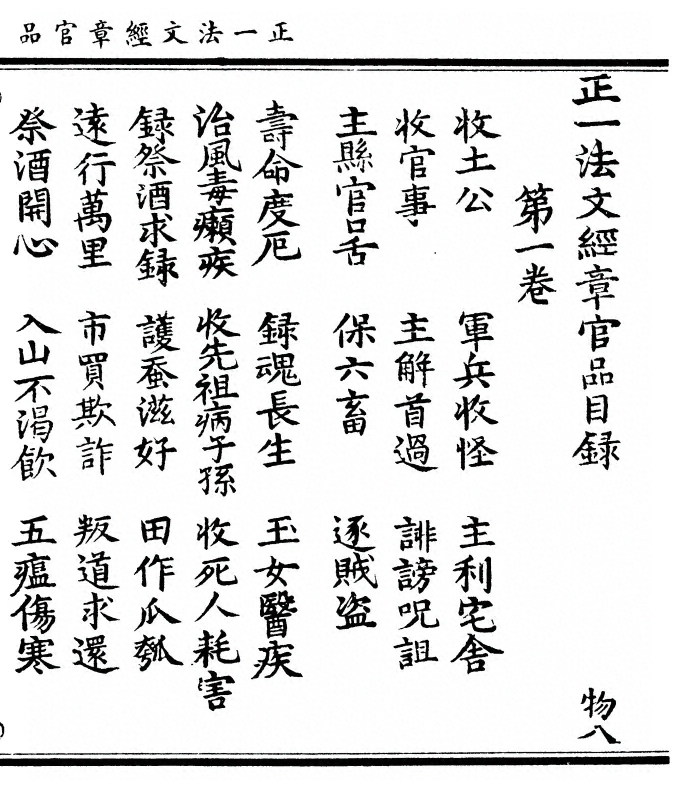 正一法文經章官品
正一法文經章官品目録 物八
第一卷
收土公 軍兵收怪 主利宅舍
收官事 主解首過 誹謗呪詛
主縣官口舌 保六畜 逐賊盗
壽命度厄 録魂長生 玉女醫疾
治風毒癩疾 收先祖病子孫 收死人耗害
録祭酒求録 護蚕滋好 田作瓜瓠
遠行萬里 市買欺詐 叛道求還
祭酒開心 入山不渴飲 五瘟傷寒